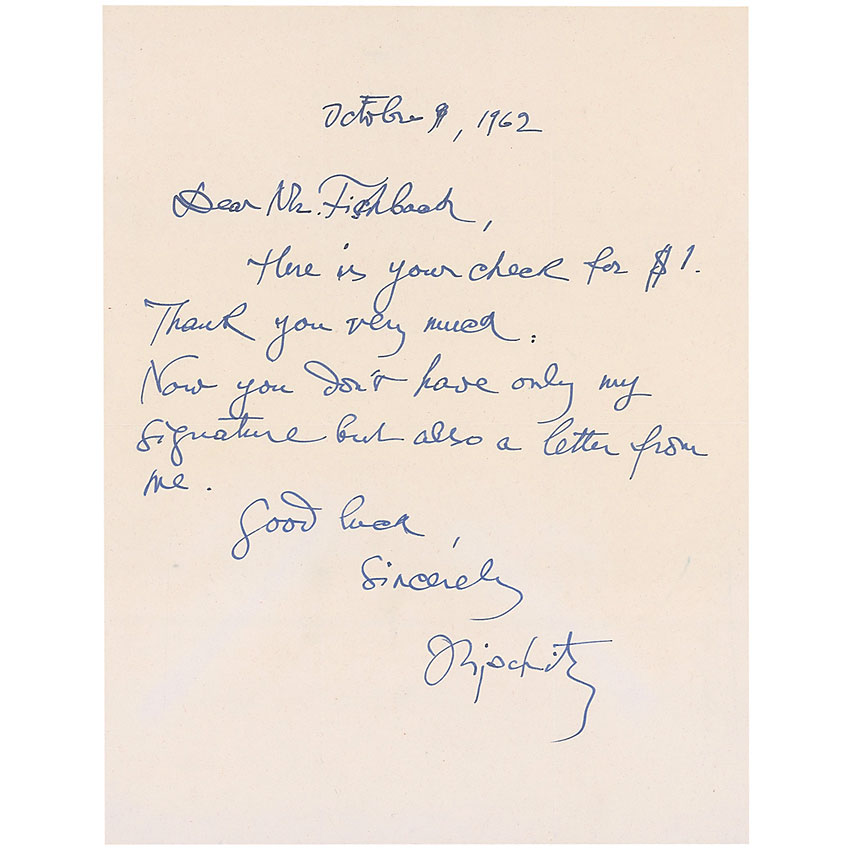 Octobre 9, 1962
Dear Mr. Fishback,
Here is your check for $1.
Thank you very much.
Now you don't have only my
signature but also a letter from
me.
Good luck,
Sincerely
JLipchitz